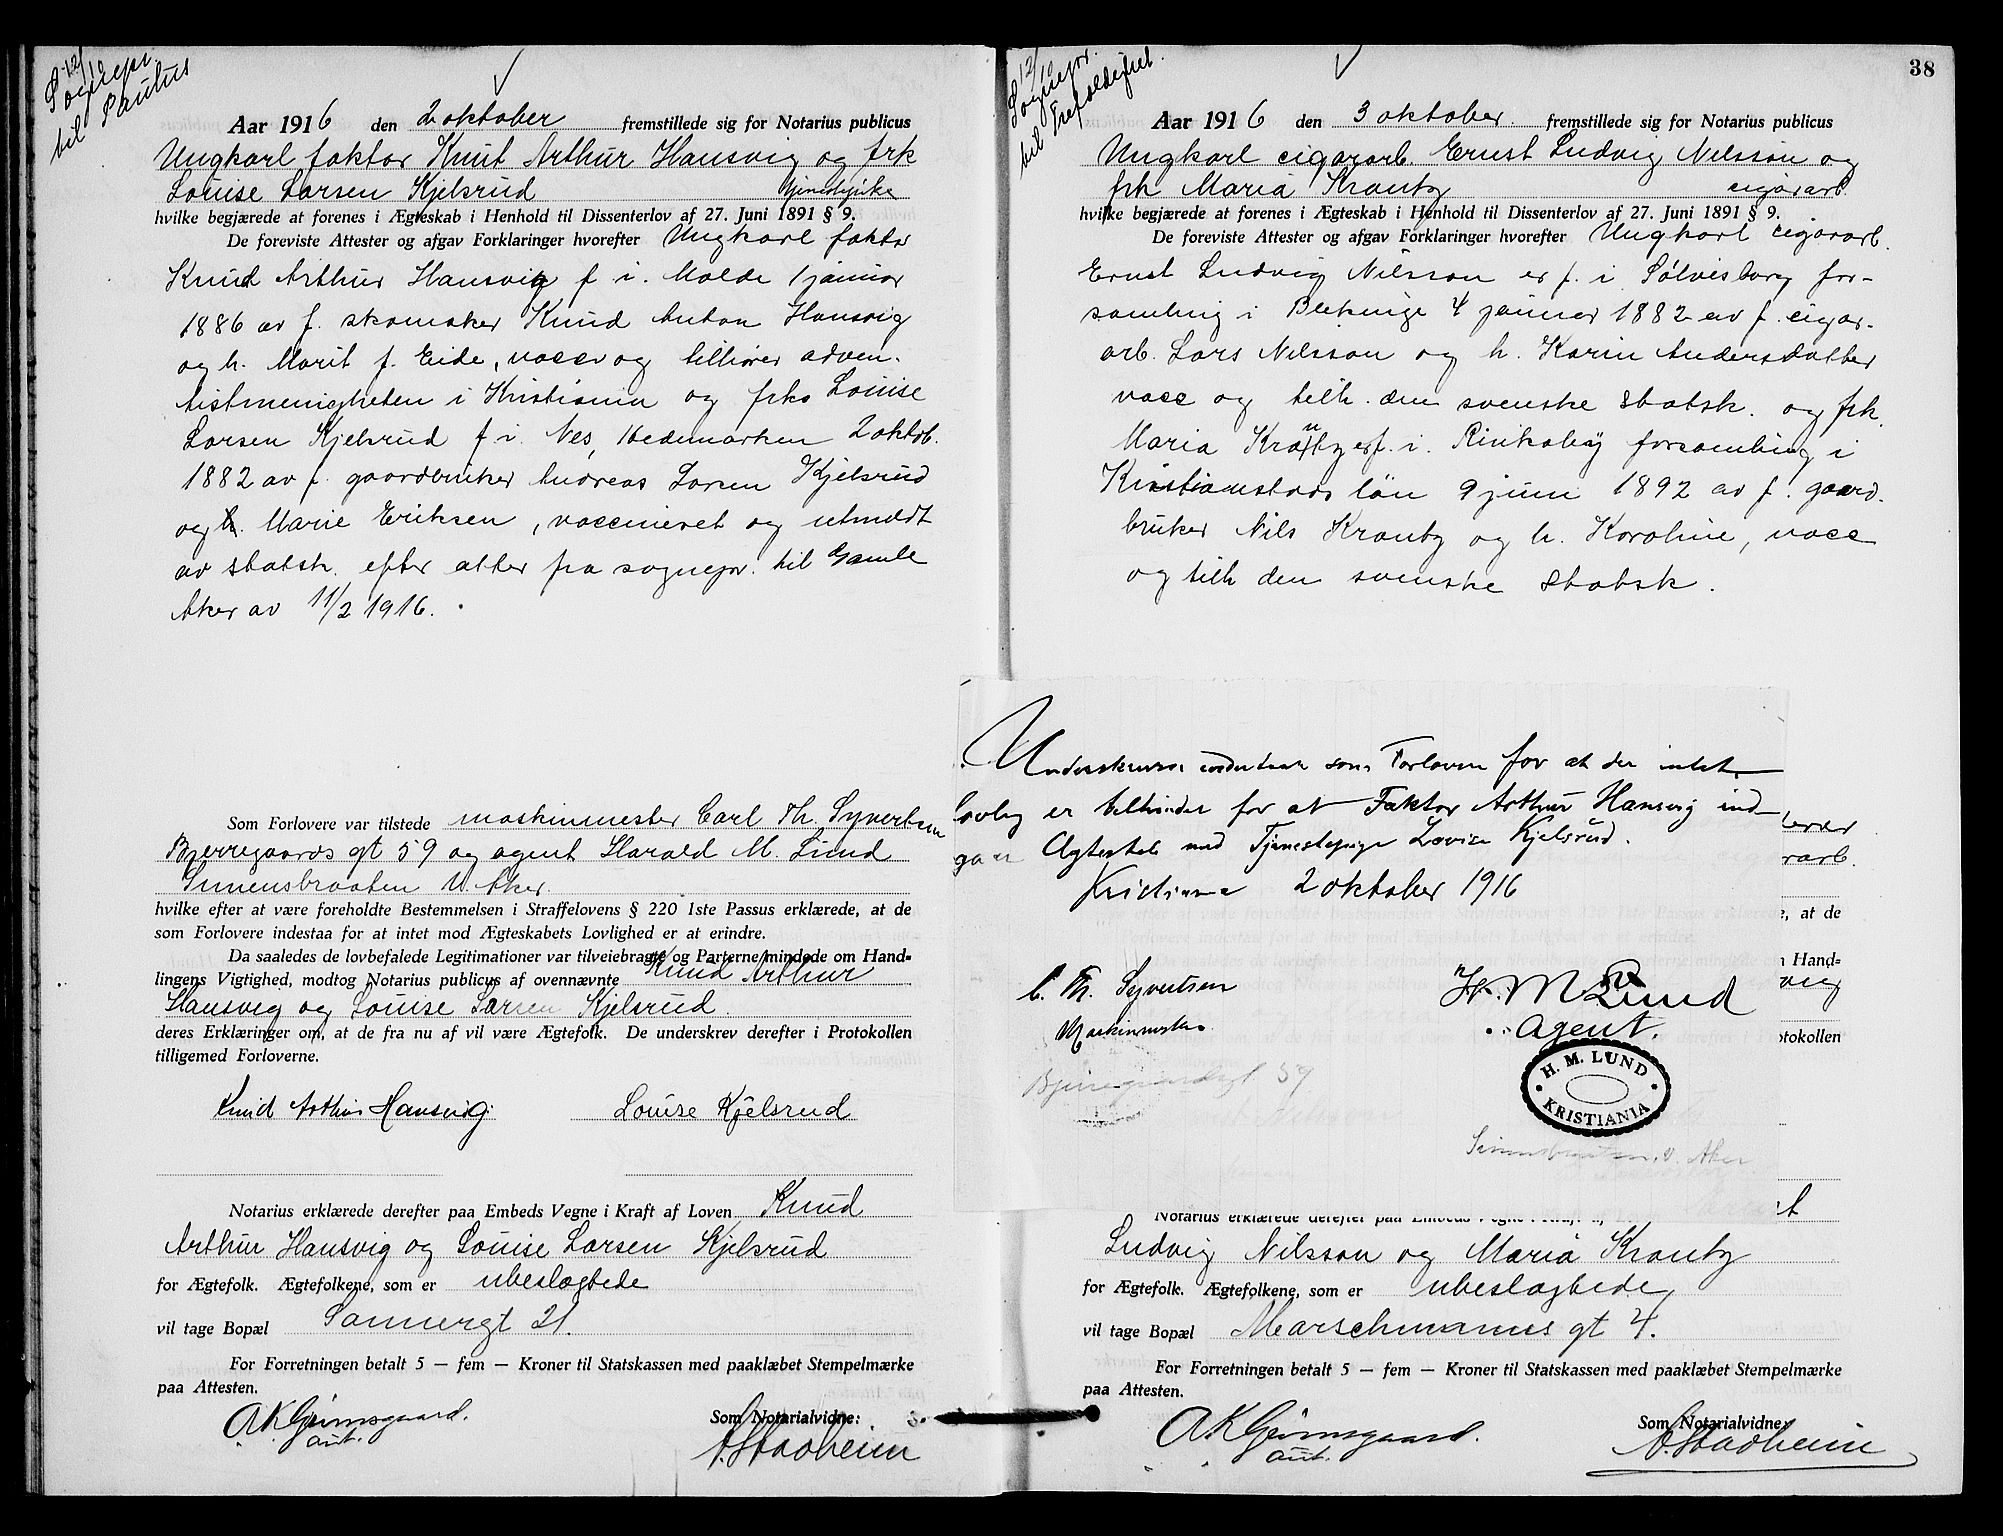 12/10
Sognepr.
til Paulus
Aar 1916 den 2 oktober fremstillede sig for Notarius publicus
Ungkarl faktor Knut Arthur Hansvig og frk
Louise Larsen Kjelsrud tjenestepike
hvilke begjærede at forenes i Ægteskab i Henhold til Dissenterlov af 27. Juni 1891 § 9.
De foreviste Attester og afgav Forklaringer hvorefter Ungkarl faktor
Knud Arthur Hansvig f i. Molde 1 januar
1886 av f. skomaker Knud Anton Hansvig
og h. Marit f. Eide, vacc og tilhører adven-
tistmenigheten i Kristiania og frk Louise
Larsen Kjelsrud f i. Nes, Hedemarken 2 oktob.
1882 av f. gaardbruker Andreas Larsen Kjelsrud
og h. Marie Eriksen, vaccineret og utmeldt
av statsk. efter attest fra sognepr. til Gamle
Aker av 11/2 1916.
Som Forlovere var tilstede maskinmester Carl Th. Syvertsen
Bjerregaards gt 59 og agent Harald M. Lund
Simensbraaten V. Aker.
hvilke efter at være foreholdte Bestemmelsen i Straffelovens § 220 1ste Passus erklærede, at de
som Forlovere indestaa for at intet mod Ægteskabets Lovlighed er at erindre.
Da saaledes de lovbefalede Legitimationer var tilveiebragte og Parterne mindede om Hand-
lingens Vigtighed, modtog Notarius publicus af ovennævnte Knud Arthur
Hansvig og Louise Larsen Kjelsrud
deres Erklæringer om, at de fra nu af vil være Ægtefolk. De underskrev derefter i Protokollen
tilligemed Forloverne.
Knud Arthur Hansvig. Louise Kjelsrud
Notarius erklærede derefter paa Embeds Vegne i Kraft af Loven Knud
Arthur Hansvig og Louise Larsen Kjelsrud
for Ægtefolk. Ægtefolkene, som er ubeslægtede
vil tage Bopæl Sannergt 21.
For Forretningen betalt 5 — fem — Kroner til Statskassen med paaklæbet Stempelmærke
paa Attesten.
AKGrimsgaard.
aut.
Som Notarialvidne:
A. Stadheim
38
12/10
Sognepr.
til Trefoldighet.
Aar 1916 den 3 oktober. fremstillede sig for Notarius publicus
Ungkarl cigararb. Ernst Ludvig Nilsson og
frk Maria Krantz cigararb.
hvilke begjærede at forenes i Ægteskab i Henhold til Dissenterlov af 27. Juni 1891 § 9.
De foreviste Attester og afgav Forklaringer hvorefter Ungkarl cigararb.
Ernst Ludvig Nilsson er f. i Sölvesborg for-
samling i Blekinge 4 januar 1882 av f. cigar-
arb. Lars Nilsson og h. Karin Andersdatter
vacc og tilh. den svenske statsk. og frk.
Maria Krantz er f. i. Rinkaby forsamling i
Kristianstads län 9 juni 1892 av f. gaard-
bruker Nils Krantz og h. Karoline, vacc
og tilh den svenske statsk.
Underskrevne indestaar som Forlovere for at der intet
lovlig er tilhinder for at Faktor Arthur Hansvig ind-
gaar Ægteskab med Tjenestepige Lovise Kjelsrud.
Kristiania 2 oktober 1916
C. Th. Syvertsen
Maskinmester
Bjerregaardsgt 59
H. M Lund
Agent.
H. M. LUND
KRISTIANIA
Simensbraaten, V. Aker
rarb.
, at de
Hand-
vig
otokollen
t
Notarius erklærede derefter paa Embeds Vegne
Ludvig Nilsson og Maria Krantz
for Ægtefolk. Ægtefolkene, som er ubeslægtede
vil tage Bopæl Marschmanns gt 4.
For Forretningen betalt 5 — fem — Kroner til Statskassen med paaklæbet Stempelmærke
paa Attesten.
AKGrimsgaard.
aut.
Som Notarialvidne:
A. Stadheim